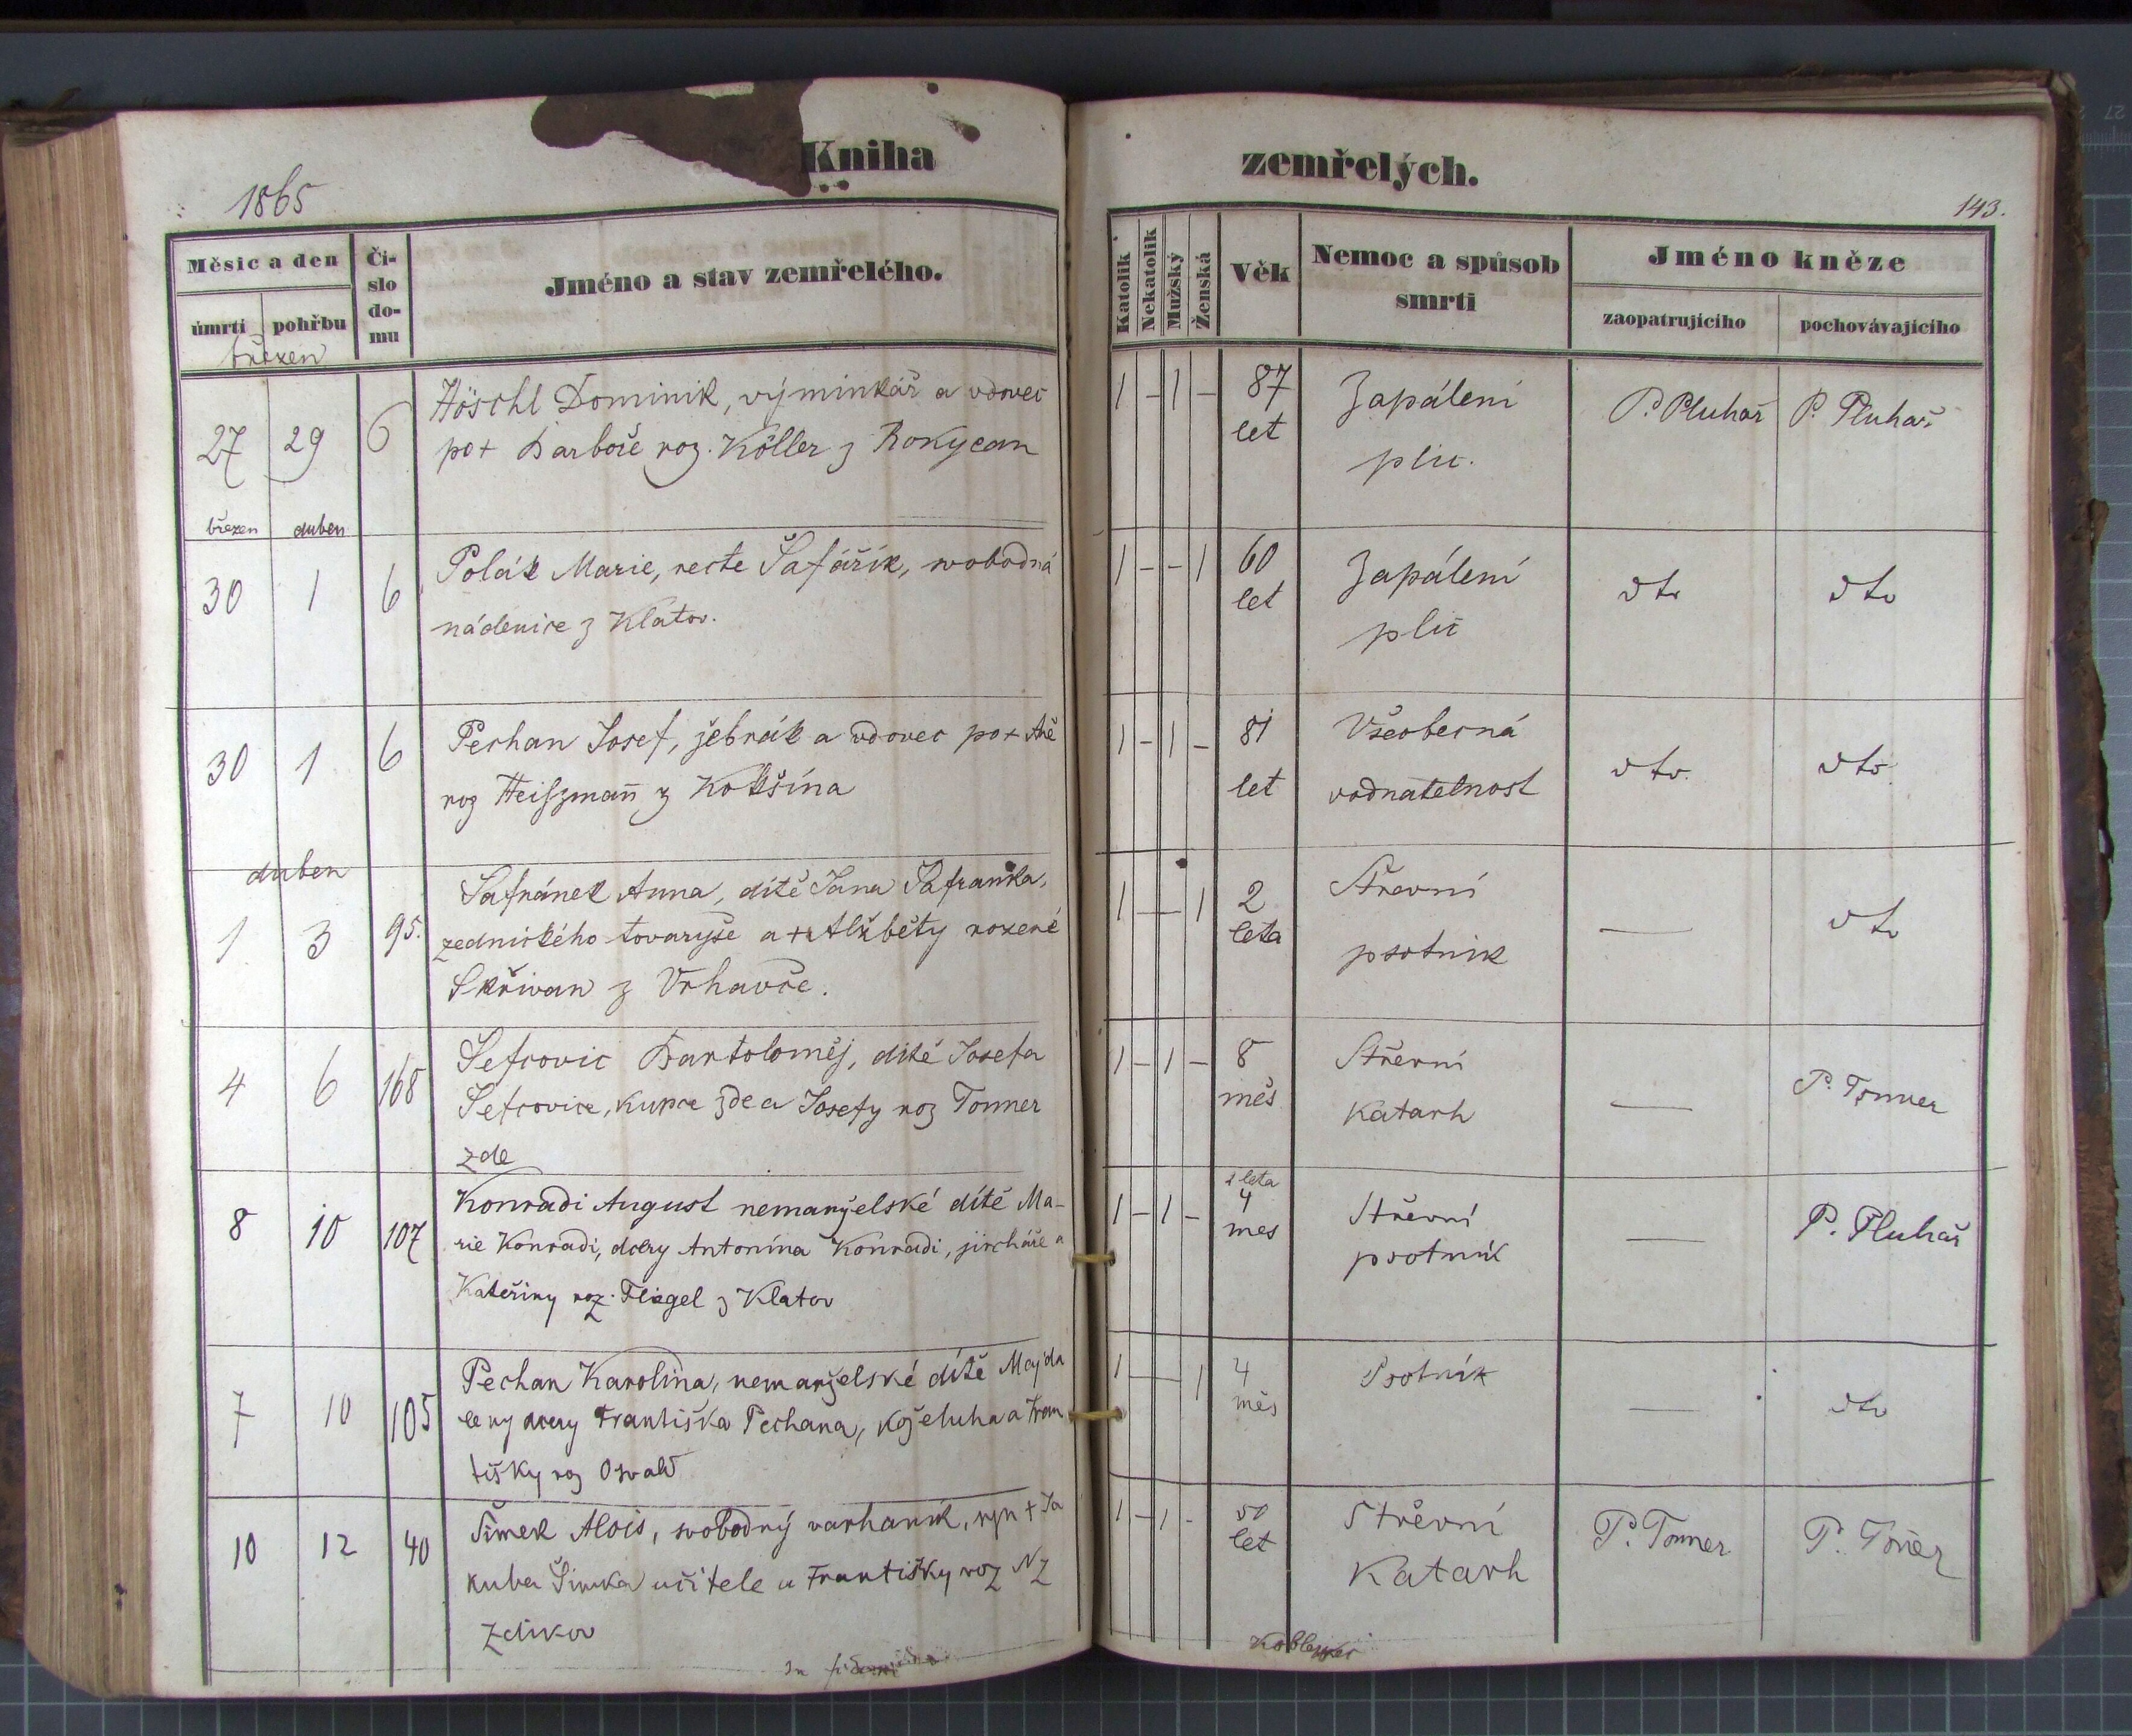 Kniha zemřelých.
1865
143.
Měsíc a den
Čí-
slo
do-
mu
Jméno a stav zemřelého.
Katolík
Nekatolík
Mužský
Ženská
Věk
Nemoc a spůsob
smrti
Jméno kněze
úmrtí
pohřbu
zaopatrujícího
pochovávajícího
březen
27 29 6
Höschl Dominik, výminkář a vdovec
po + Barboře roz. Köller z Rokycan
1 - 1 -
87
let
Zapálení
plic.
P. Pluhař
P. Pluhař
březen duben
30 1 6
Polák Marie, recte Šafářík, svobodná
nádenice z Klatov.
1 - - 1
60
let
Zapálení
plic
dto
dto
30 1 6
Pechan Josef, žebrák a vdovec po +
roz Heiszmann z Kokšína
1 - 1 -
81
let
Všeobecná
vodnatelnost
dto.
dto.
duben
1 3 95.
Šafránek Anna, dítě Jana Šafránka,
zednického tovaryše a Alžběty rozené
Skřivan z Vrhavče.
1 — 1
2
leta
Střevní
psotník
—
dto
4 6 168
Šefcovic Bartoloměj, dítě Josefa
Šefcovice, kupce zde a Josefy roz Tonner
zde
1 - 1 -
8
měs
Střevní
Katarh
—
P. Tonner
8 10 107
Konradi August nemanželské dítě Ma-
rie Konradi, dcery Antonína Konradi, jircháře a
Kateřiny roz. Fliegel z Klatov
1 - 1 -
2 leta
4
mes
Střevní
psotník
—
P. Pluhař
7 10 105
Pechan Karolina, nemanželské dítě Majda
leny dcery Františka Pechana, koželuha a Fran
tišky roz Osvald
1 — 1
4
měs
Psotník
—
dto
10 12 40
Šimek Alois, svobodný varhaník, syn + Ja
kuba Šimka učitele a Františky roz NZ
Zdikov
1 - 1 -
50
let
Střevní
Katarh
P. Tonner
P. Toner